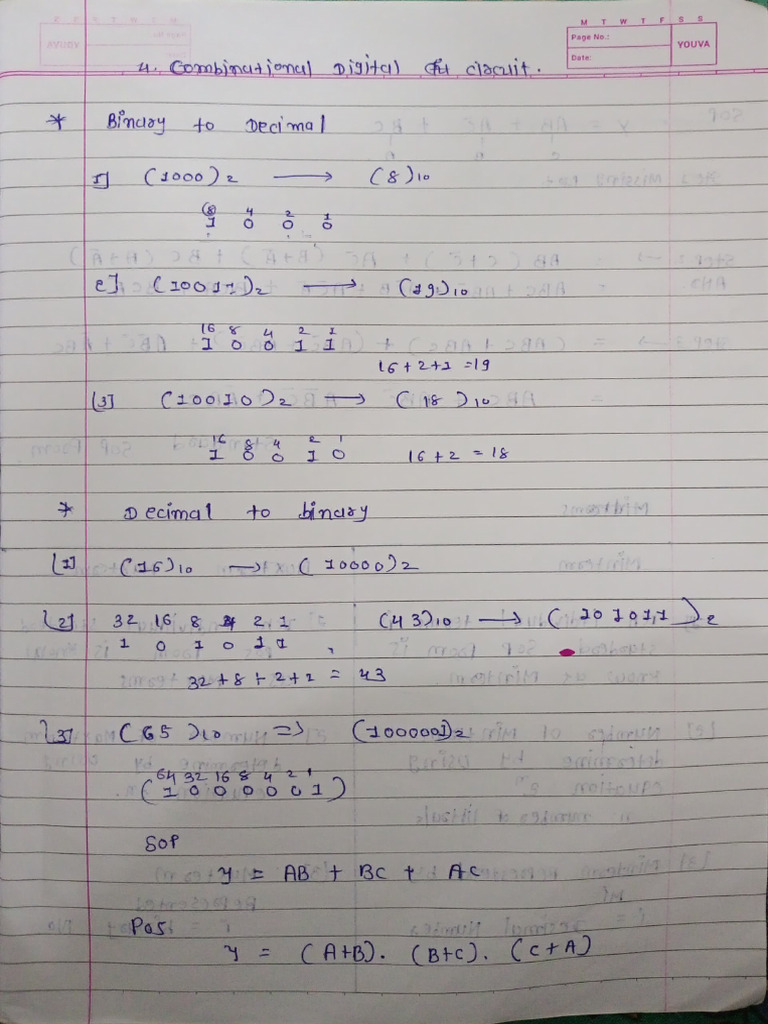 M T W T F S S
Page No.:
Date:
YOUVA
4. Combinational Digital circuit.
* Binary to Decimal
1] (1000)2 → (8)10
8 4 2 1
1 0 0 0
2] (10011)2 → (19)10
16 8 4 2 1
1 0 0 1 1
16+2+1 =19
[3] (10010)2 → (18)10
16 8 4 2 1
1 0 0 1 0 16+2 = 18
* Decimal to binary
[1] (16)10 → (10000)2
[2] 32 16 8 4 2 1 (43)10 → (101011)2
1 0 1 0 1 1
32+8+2+2 = 43
[3] (65)10 => (1000001)2
64 32 16 8 4 2 1
(1 0 0 0 0 0 1)
SOP
y = AB + BC + AC
Pos
y = (A+B). (B+C). (C+A)